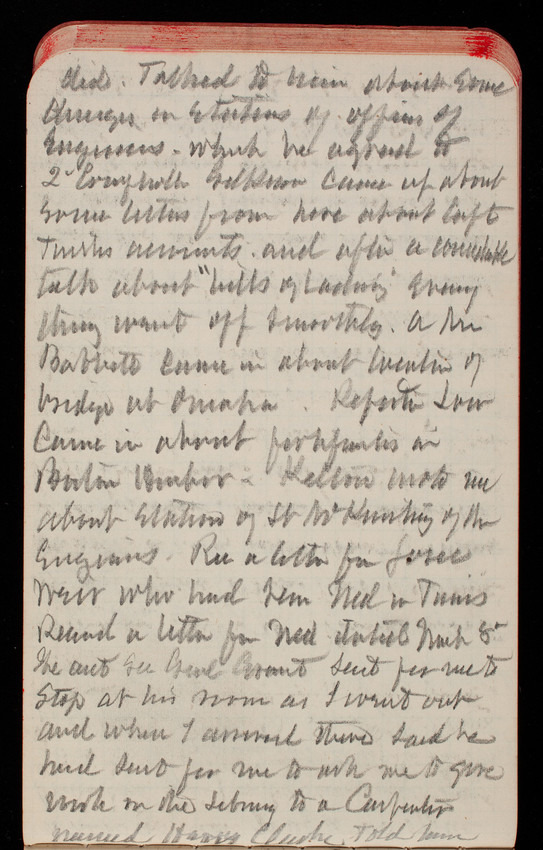 did. Talked to him about some
changes in stations of officers of
Engineers - which he agreed to
2d Comptroller came up about
some letters from here about Capt
Twins accounts. and after a considerable
talk about "bills of Lading" every
thing went off smoothly. A Mr
Babbitt came in about location of
bridge at Omaha. Reporter Low
came in about fortifications in
Boston Harbor - Kelton wrote me
about station of Lt of the
Engineers. Rec a letter from
West who had seen Ned in Tunis
Received a letter from Ned dated March 8th
Genl Grant sent for me to
stop at his room as I went out
and when I arrived there said he
had sent for me to ask me to give
work on the Library to a Carpenter
named Henry Clarke. Told him